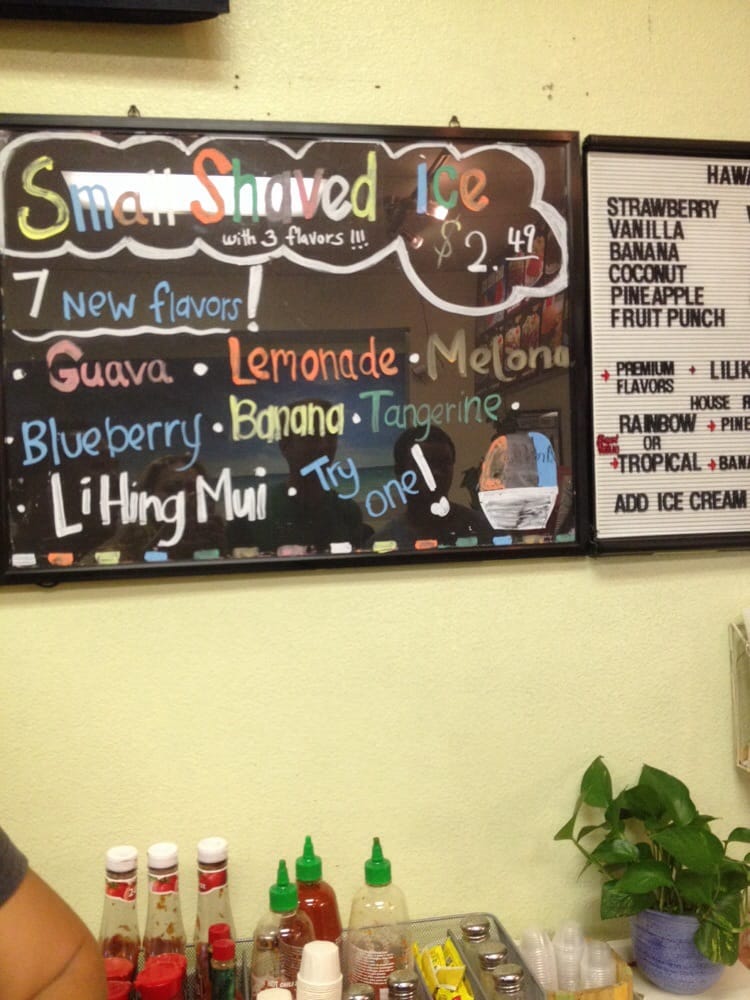 Small Shaved ice
with 3 flavors !!!
$2.49
7 New flavors!
• Guava • Lemonade • Melona
• Blueberry • Banana • Tangerine •
• Li Hing Mui • Try one!
HAWA
STRAWBERRY
VANILLA
BANANA
COCONUT
PINEAPPLE
FRUIT PUNCH
PREMIUM FLAVORS LILIK
HOUSE F
RAINBOW PINE
OR
TROPICAL BANA
ADD ICE CREAM